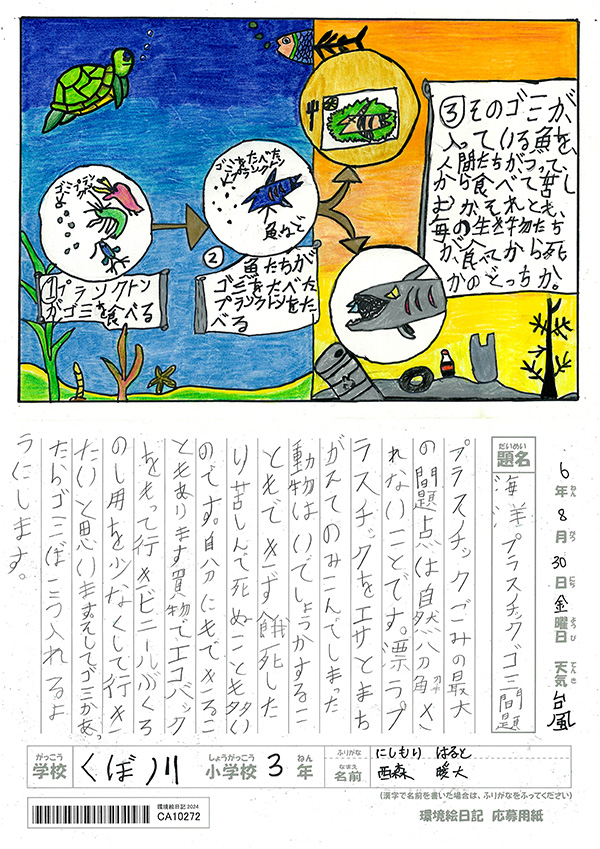 ゴミをたべた
プランクトン
①プランクトン
がゴミを食べる
②
魚たちが
ゴミをたべた
プランクトンをた
べる
③そのゴミが、
入っている魚を、
人間たちがつって、
から食べて苦し
むか、それとも、
海の生き物たち
が食べてから死
かのどっちか。
6年 8月 30日 金曜日 天気 台風
ねん がつ にち ようび てんき
だいめい
題名
海洋プラスチックゴミ問題
プラスチックごみの最大
の問題点は自然分解さ
れないことです。漂うプ
ラスチックをエサとまち
がえてのみこんでしまった
動物はいでしょうかするこ
ともできず餓死した
り苦しんで死ぬことも多い
のです。自分にもできるこ
ともあります買物でエコバック
をもって行きビニールぶくろ
のし用ちを少なくして行き
たいと思いますそしてゴミがあっ
たらゴミばこに入れるよ
うにします。
がっこう しょうがっこう ねん
学校 くぼ川 小学校 3年
ふりがな にしもり はると
なまえ
名前 西森 暖大
(漢字で名前を書いた場合は、ふりがなをふってください)
環境絵日記2024
CA10272
環境絵日記 応募用紙